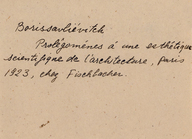 Borissavliévitch
Prolégomènes à une esthétique
scientifique de l'architecture, Paris
1923, chez Fischbacher.